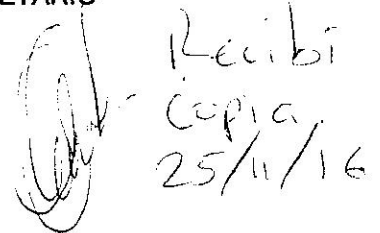 Recibi
copia.
25/11/16